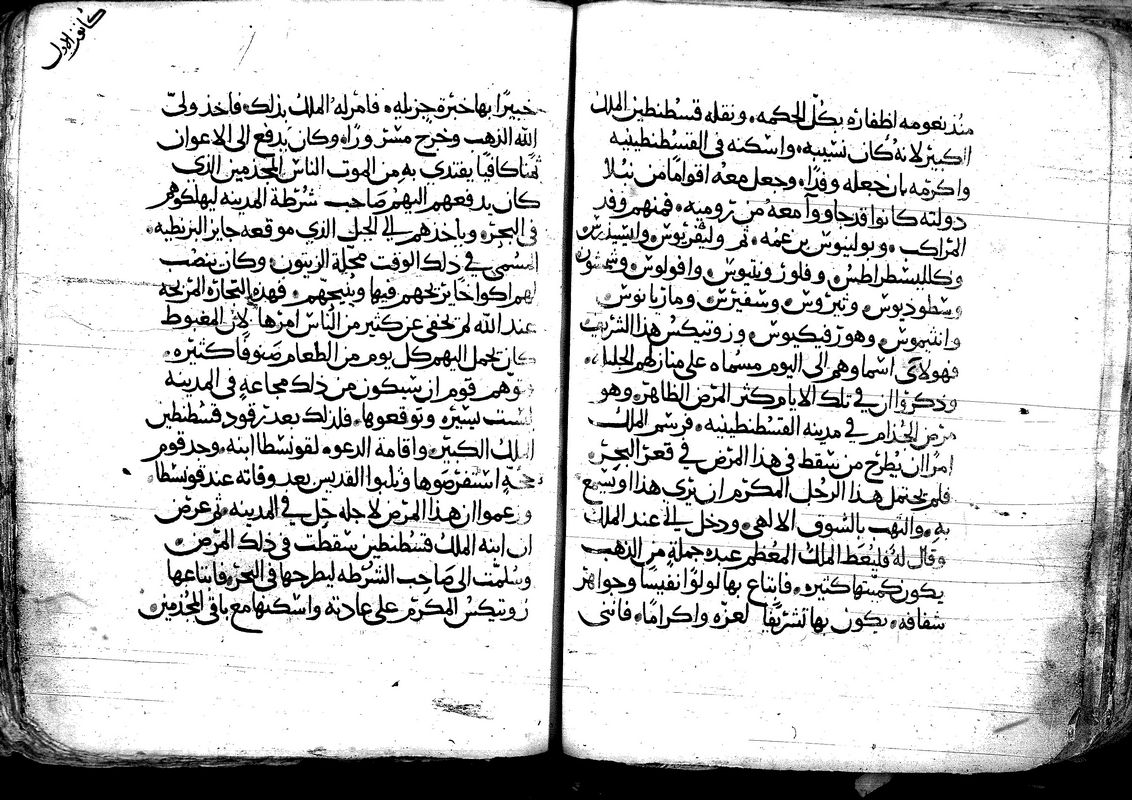 منذ نعومه اظفاره بكل الحكمه. ونقله قسطنطين الملك
الكبير لانه كان نسيبه. واسكنه في القسطنطينيه
واكرمه بان جعله وفدا. وجعل معه اقواما من نبلا
دولته كانوا قد جاووا معه من روميه. فمنهم وفد
المراكب. وبولينوس بن عمه. ثم
وفلورونتيوس وافولوس
ومازيانوس
وانثيموس وزوتيكس هذا الشريف
فهولاى اسماوهم الى اليوم مسماه على منازلهم الجليله.
وذكروا ان في تلك الايام كثر المرض الظاهر. وهو
مرض الجذام في مدينه القسطنطينيه. فرسم الملك
امرا ان يطرح من سقط في هذا المرض في قعر البحر.
فلم يحتمل هذا الرجل المكرم ان يري هذا او يسمع
به. والتهب بالشوق الالاهي. ودخل الى عند الملك
وقال له فليعط الملك المعظم عبده جملة من الذهب
يكون كميتها كثيره. فابتاع بها لولوا نفيسا وجواهر
شفافه. يكون بها تشريفا لعزه واكراما. فانني
كانون الاول
خبيرا بها خبرة جزيله. فامر له الملك بذلك. فاخذ ولي
الله الذهب وخرج مسرورا. وكان يدفع الى الاعوان
ثمنا كافيا يفتدى به من الموت الناس المجذمين الذي
كان يدفعهم اليهم صاحب شرطة المدينه ليهلكوهم
في البحر. وياخذهم الى الجبل الذي موقعه جايز البزنطيه.
المسمى في ذلك الوقت محلة الزيتون. وكان ينصب
لهم اكواخا يريحهم فيها وينيحهم. فهذه التجاره المربحه
عند الله لم تخفى عن كثير من الناس امرها. لان المغبوط
كان يحمل اليهم كل يوم من الطعام صنوفا كثيره.
قوم ان سيكون من ذلك مجاعه في المدينه
ليست يسيره وتوقعوها. فلذلك بعد رقود قسطنطين
الملك الكبير. واقامة الدعوه لقونسطا ابنه. وجد قوم
حجة استفرصوها وثلبوا القديس بعد وفاته عند قونسطا.
وزعموا ان هذا المرض لاجله حل في المدينه. ثم عرض
ان ابنه الملك قسطنطين سقطت في ذلك المرض.
وسلمت الى صاحب الشرطه ليطرحها في البحر. فابتاعها
زوتيكس المكرم على عادته واسكنها مع باقي المجذمين.